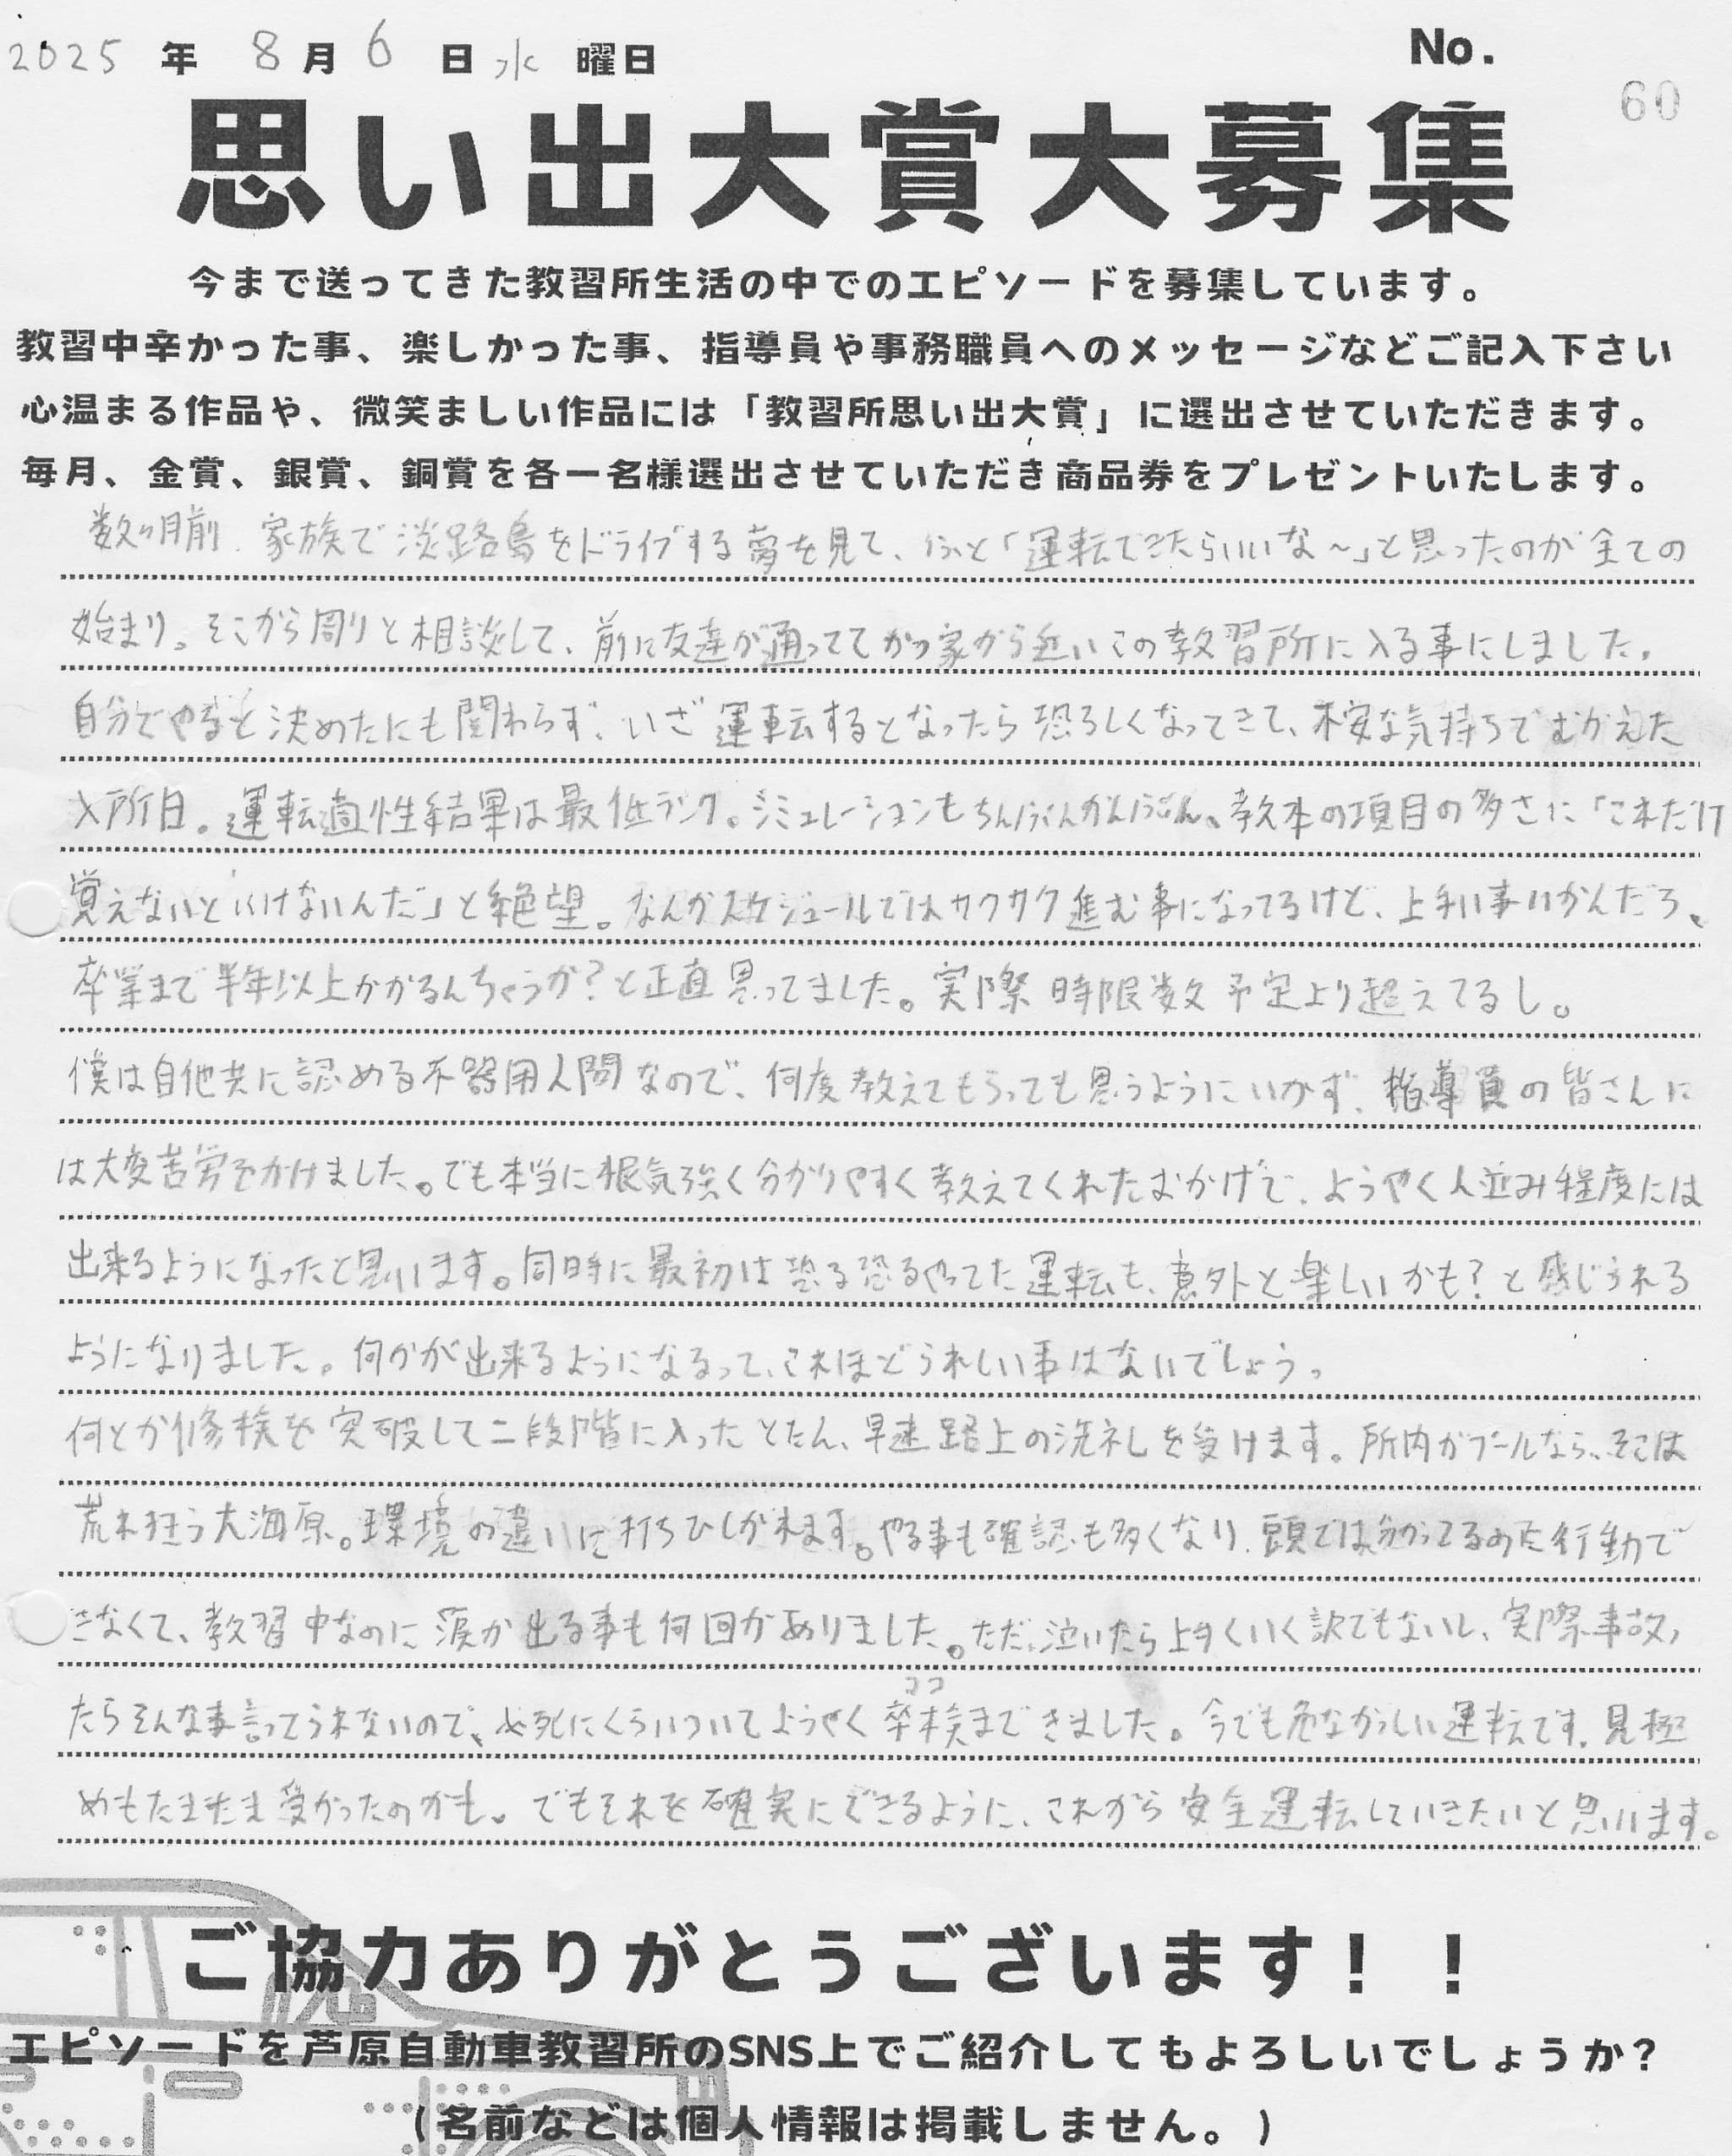 2025 年 8 月 6 日 水 曜日 No.
60
思い出大賞大募集
今まで送ってきた教習所生活の中でのエピソードを募集しています。
教習中辛かった事、楽しかった事、指導員や事務職員へのメッセージなどご記入下さい
心温まる作品や、微笑ましい作品には「教習所思い出大賞」に選出させていただきます。
毎月、金賞、銀賞、銅賞を各一名様選出させていただき商品券をプレゼントいたします。
数ヶ月前、家族で淡路島をドライブする夢を見て、ふと「運転できたらいいな〜」と思ったのが全ての
始まり。そこから周りと相談して、前に友達が通っててかつ家から近いこの教習所に入る事にしました。
自分でやると決めたにも関わらず、いざ運転するとなったら恐ろしくなってきて、不安な気持ちでむかえた
入所日。運転適性結果は最低ランク。シミュレーションもちんぷんかんぷん、教本の項目の多さに「これだけ
覚えないといけないんだ」と絶望。なんかスケジュールではサクサク進む事になってるけど、上手い事いかんだろ、
卒業まで半年以上かかるんちゃうか?と正直思ってました。実際時限数予定より超えてるし。
僕は自他共に認める不器用人間なので、何度教えてもらっても思うようにいかず、指導員の皆さんに
は大変苦労をかけました。でも本当に根気強く分かりやすく教えてくれたおかげで、ようやく人並み程度には
出来るようになったと思います。同時に最初は恐る恐るやってた運転も、意外と楽しいかも?と感じられる
ようになりました。何かが出来るようになるって、これほどうれしい事はないでしょう。
何とか修検を突破して二段階に入ったとたん、早速路上の洗礼を受けます。所内がプールなら、そこは
荒れ狂う大海原。環境の違いに打ちひしがれます。やる事も確認も多くなり、頭では分かってるのに行動で
きなくて、教習中なのに涙が出る事も何回かありました。ただ、泣いたら上手くいく訳でもないし、実際事故っ
たらそんな事言ってられないので、必死にくらいついてようやく卒検まできました。今でも危なかっしい運転です。見極
ココ
めもたまたま受かったのかも。でもそれを確実にできるように、これから安全運転していきたいと思います。
ご協力ありがとうございます！！
エピソードを芦原自動車教習所のSNS上でご紹介してもよろしいでしょうか?
(名前などは個人情報は掲載しません。)